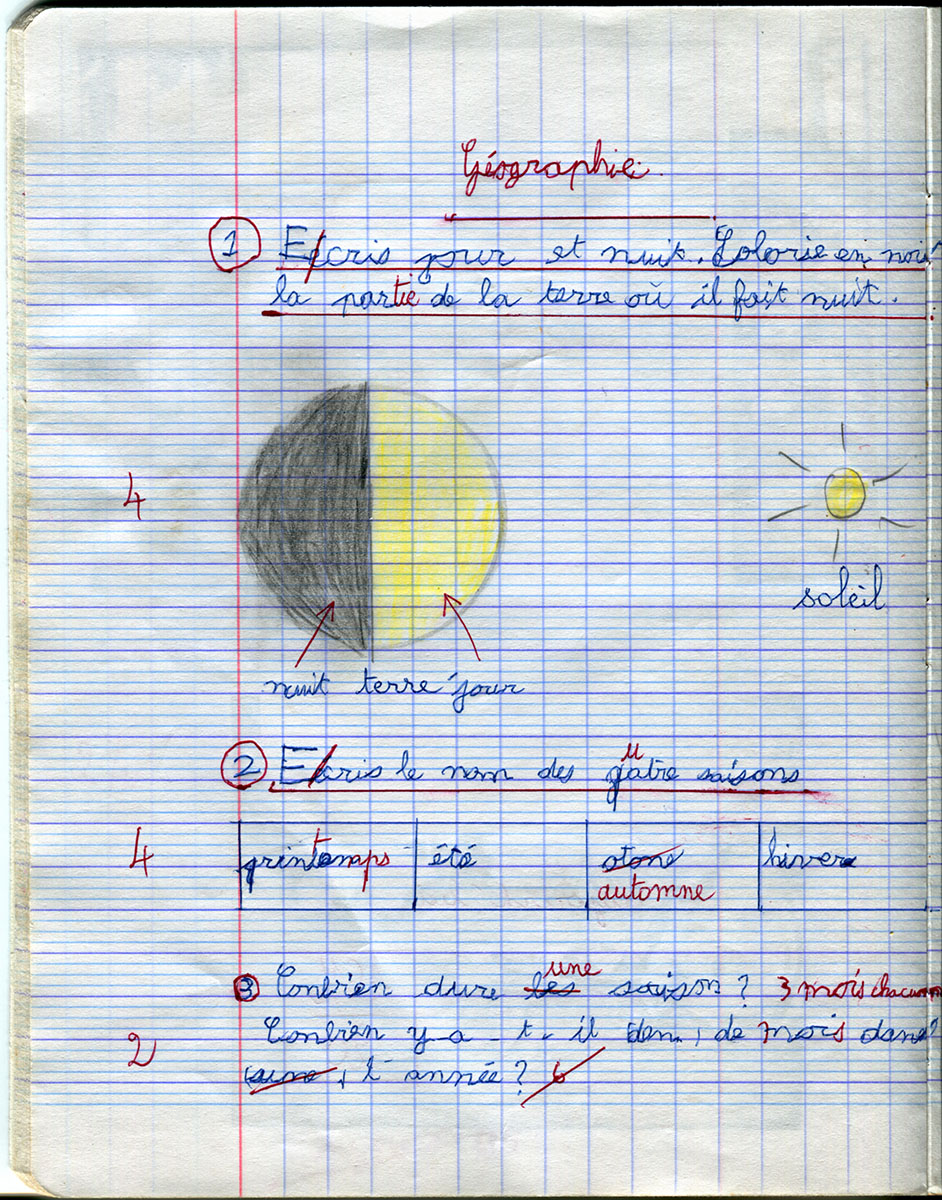 Géographie.
1 Ecris jour et nuit. Colorie en noir
la partie de la terre où il fait nuit.
4
soleil
nuit terre jour
2 Ecris le nom des quatre saisons
4
printemps été otone hivere
automne
une
3 Conbien dure les saison ? 3 mois chacune
Conbien y a-t-il de mois dans
l'année ? 6
2